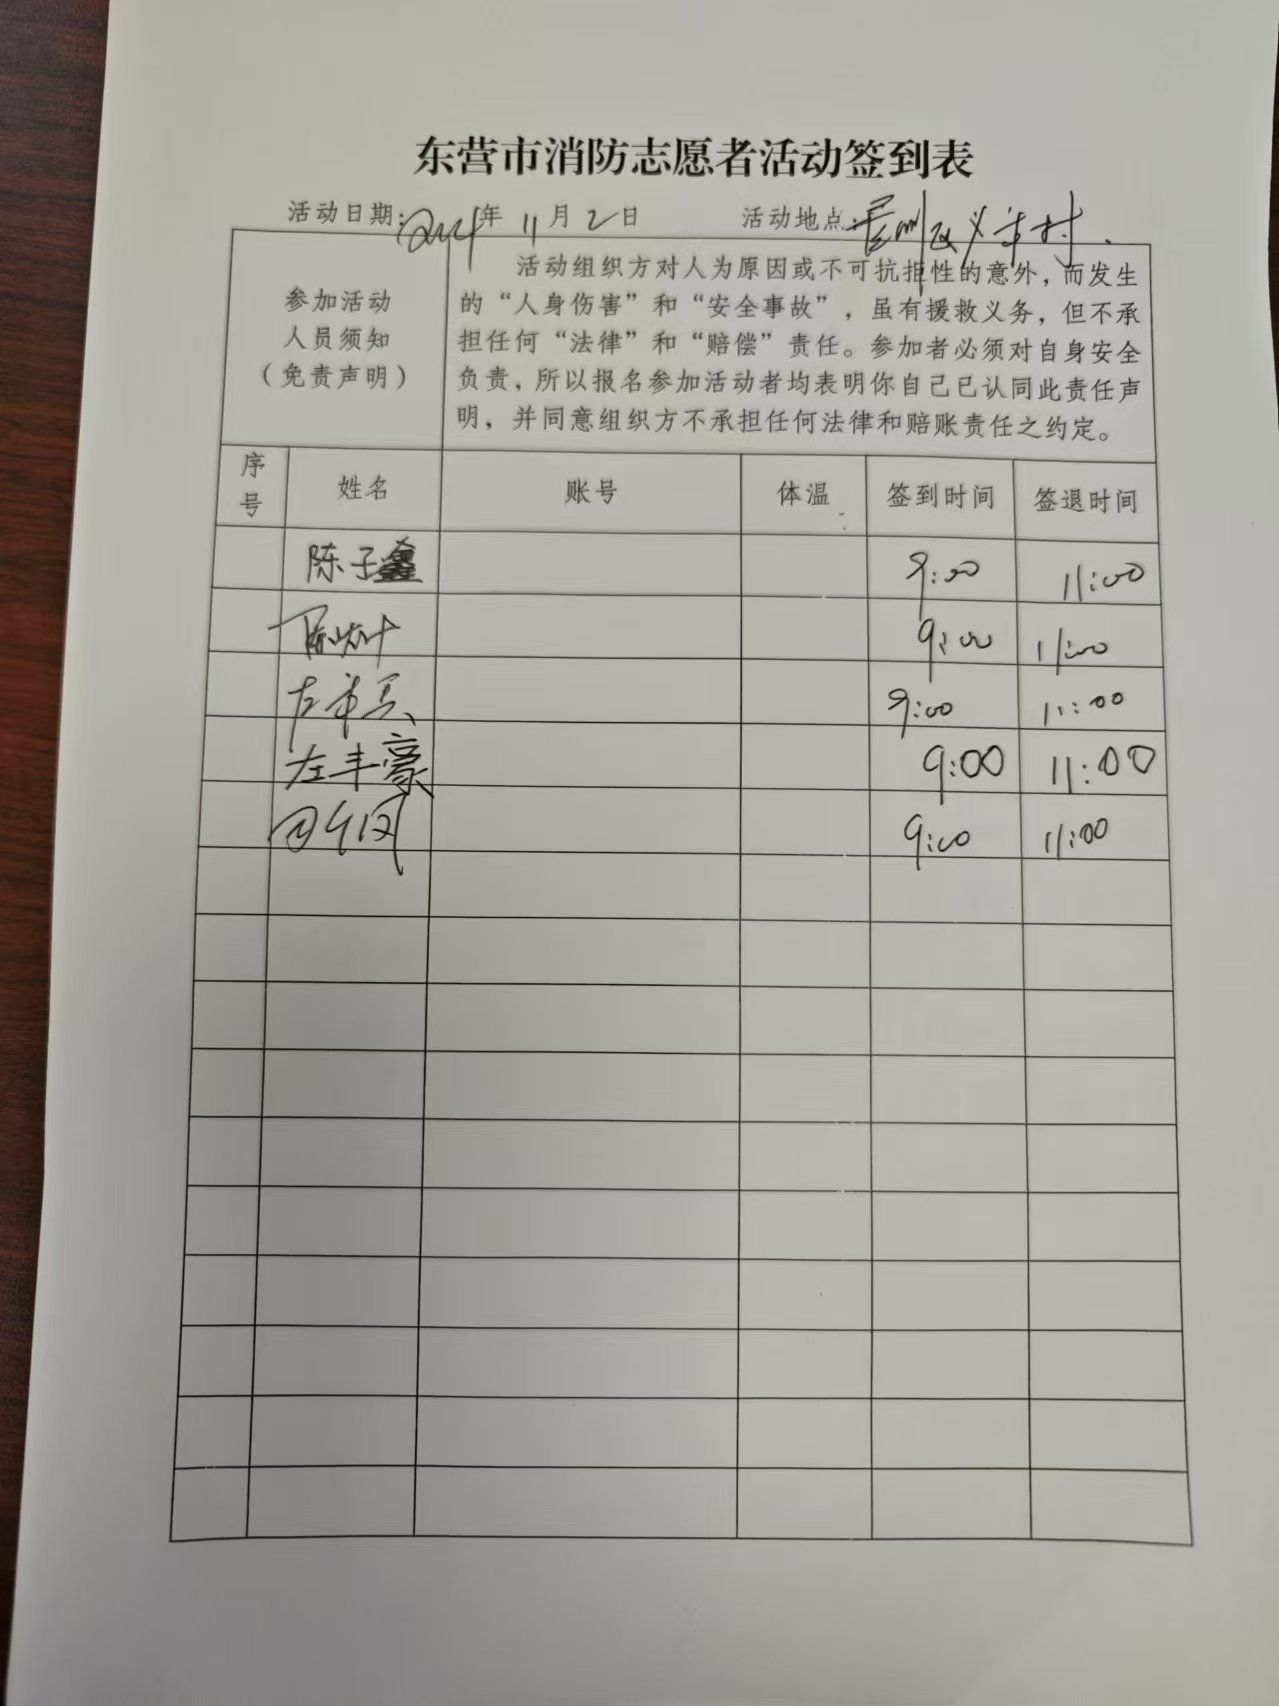 东营市消防志愿者活动签到表
活动日期:2024年11月2日 活动地点:
参加活动
人员须知
（免责声明）
活动组织方对人为原因或不可抗拒性的意外，而发生
的“人身伤害”和“安全事故”，虽有援救义务，但不承
担任何“法律”和“赔偿”责任。参加者必须对自身安全
负责，所以报名参加活动者均表明你自己已认同此责任声
明，并同意组织方不承担任何法律和赔账责任之约定。
序号 姓名 账号 体温 签到时间 签退时间
陈子鑫 9:00 11:00
9:00 11:00
9:00 11:00
左丰豪 9:00 11:00
9:00 11:00